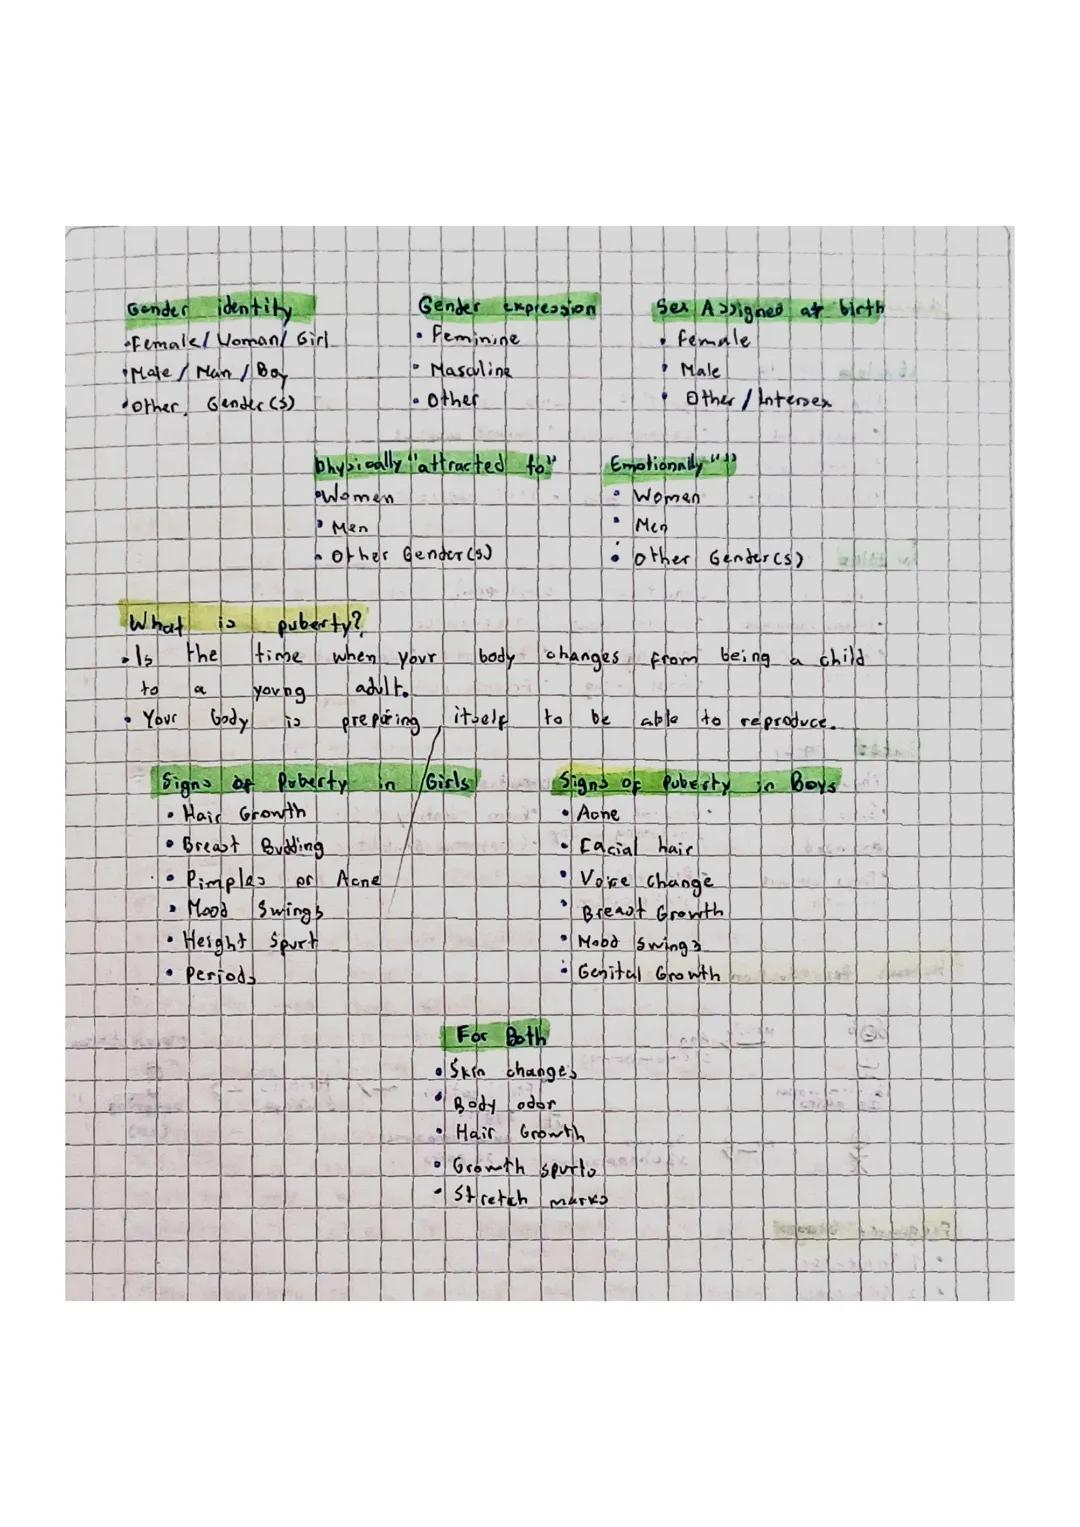 Gender identity
• Female/Woman/Girl
• Male/Man/Boy
• Other Gender(s)
Gender expression
• Feminine
• Masculine
• Other
Sex Assigned at birth
• Female
• Male
• Other/Intersex
physically "attracted to"
• Women
• Men
• Other Gender(s)
Emotionally " "
• Women
• Men
• Other Gender(s)
What is puberty?
• Is the time when your body changes from being a child
to a young adult.
• Your body is preparing itself to be able to reproduce.
Signs of Puberty in Girls
• Hair Growth
• Breast Budding
• Pimples or Acne
• Mood Swings
• Height Spurt
• Periods
Signs of Puberty in Boys
• Acne
• Facial hair
• Voice Change
• Breast Growth
• Mood Swings
• Genital Growth
For Both
• Skin changes
• Body odor
• Hair Growth
• Growth spurts
• Stretch marks